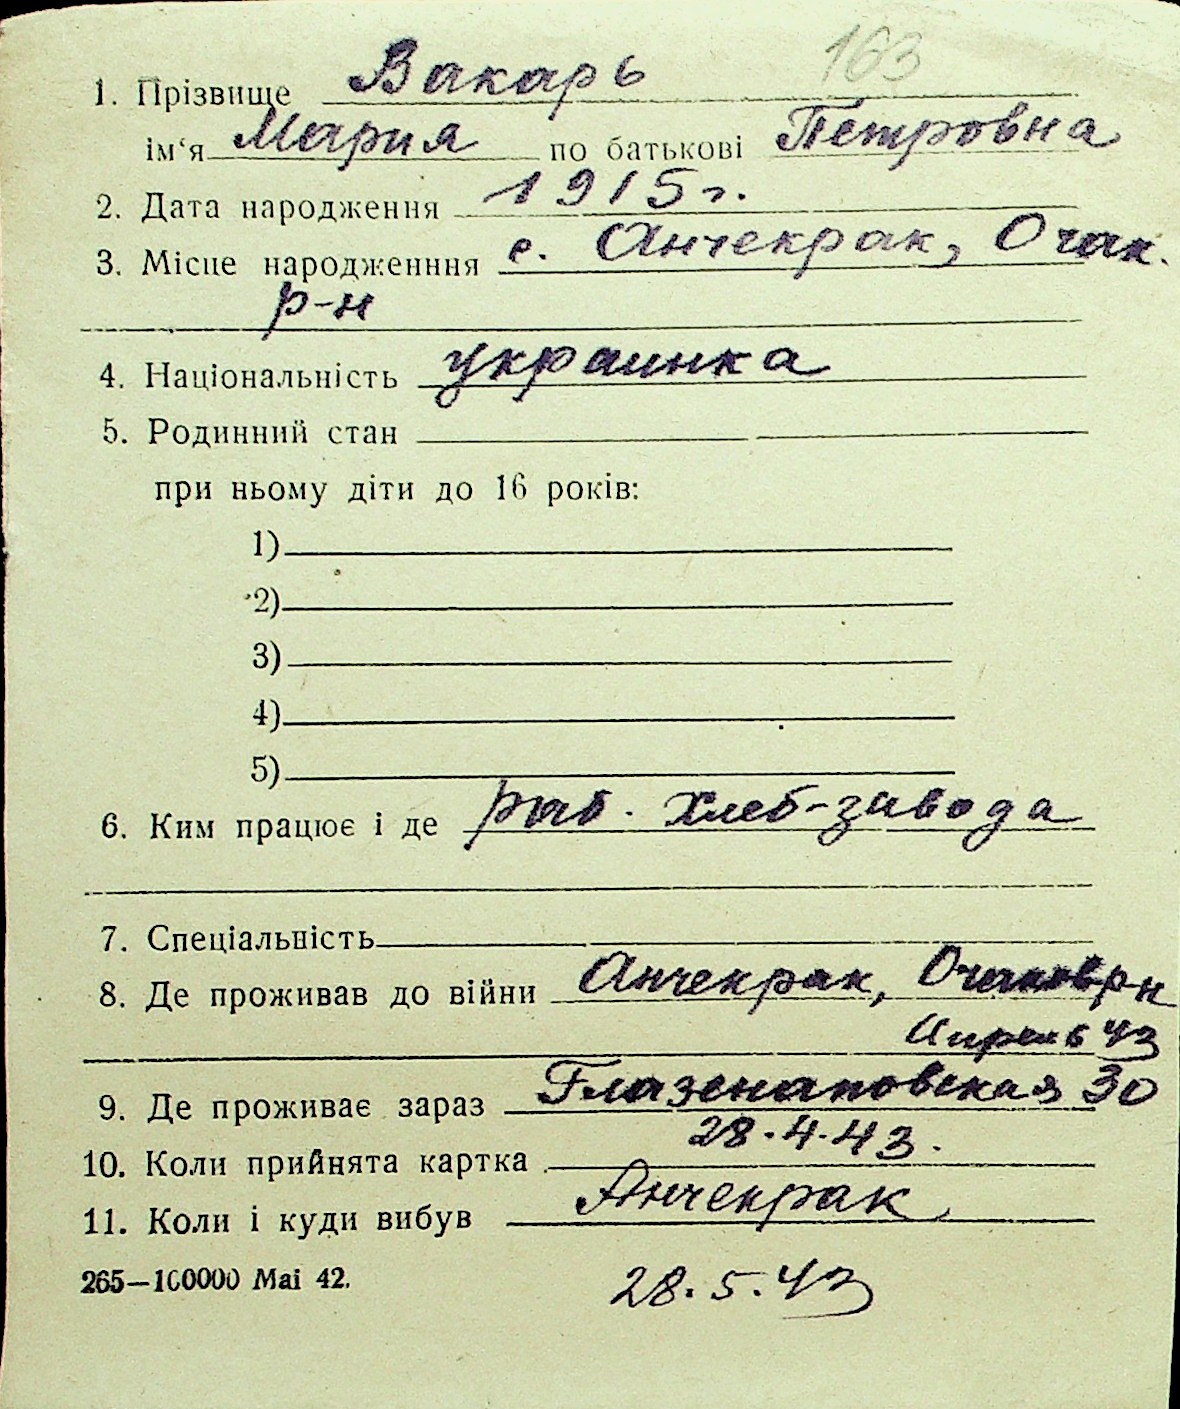 163
1. Прізвище Вакарь
ім‘я Мария по батькові Петровна
2. Дата народження 1915 г.
3. Місце народженння с. Анчекрак, Очак.
р-н
4. Національність украинка
5. Родинний стан
при ньому діти до 16 років:
1)
2)
3)
4)
5)
6. Ким працює і де раб. хлеб-завода
7. Спеціальність
8. Де проживав до війни Анчекрак, Очаков р-н
Апрель 43
9. Де проживає зараз Глазенаповская 30
10. Коли прийнята картка 28.4.43.
11. Коли і куди вибув Анчекрак
265—100000 Mai 42. 28.5.43